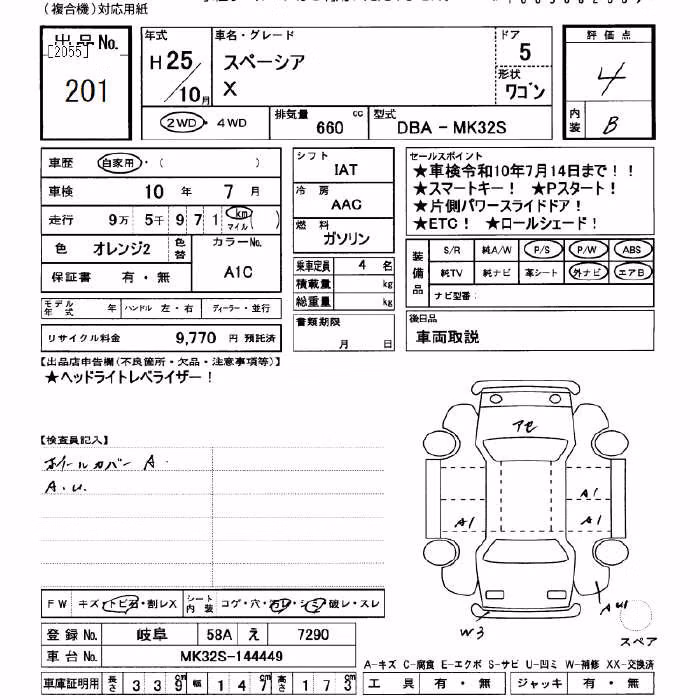 (複合機)対応用紙
出品No.
[2055]
201
年式
H25/10月
車名・グレード
スペーシア
X
ドア
5
形状
ワゴン
評価点
4
内装
B
2WD・4WD
排気量 660 cc
型式 DBA - MK32S
車歴 自家用・( )
車検 10 年 7 月
走行 9万 5千 9 7 1 km マイル ( )
色 オレンジ2 色替 カラーNo. A1C
保証書 有・無
モデル年式 年 ハンドル 左・右 ディーラー・並行
リサイクル料金 9,770 円 預託済
シフト
IAT
冷房
AAC
燃料
ガソリン
乗車定員 4 名
積載量 kg
総重量 kg
書類期限
月 日
セールスポイント
★車検令和10年7月14日まで!!
★スマートキー! ★Pスタート!
★片側パワースライドドア!
★ETC! ★ロールシェード!
装備品
S/R 純A/W P/S P/W ABS
純TV 純ナビ 革シート 外ナビ エアB
ナビ型番:
後日品
車両取説
【出品店申告欄(不良箇所・欠品・注意事項等)】
★ヘッドライトレベライザー!
【検査員記入】
ホイールカバー A.
A.U.
アセ
A1
A1 A1
AU1
W3
スペア
FW キズ・トビ石・割レX
シート内装 コゲ・穴・汚レ・シミ・破レ・スレ
登録No. 岐阜 58A え 7290
車台No. MK32S-144449
車庫証明用 長さ 3 3 9 cm 幅 1 4 7 cm 高さ 1 7 3 cm
A-キズ C-腐食 E-エクボ S-サビ U-凹ミ W-補修 XX-交換済
工具 有・無 ジャッキ 有・無